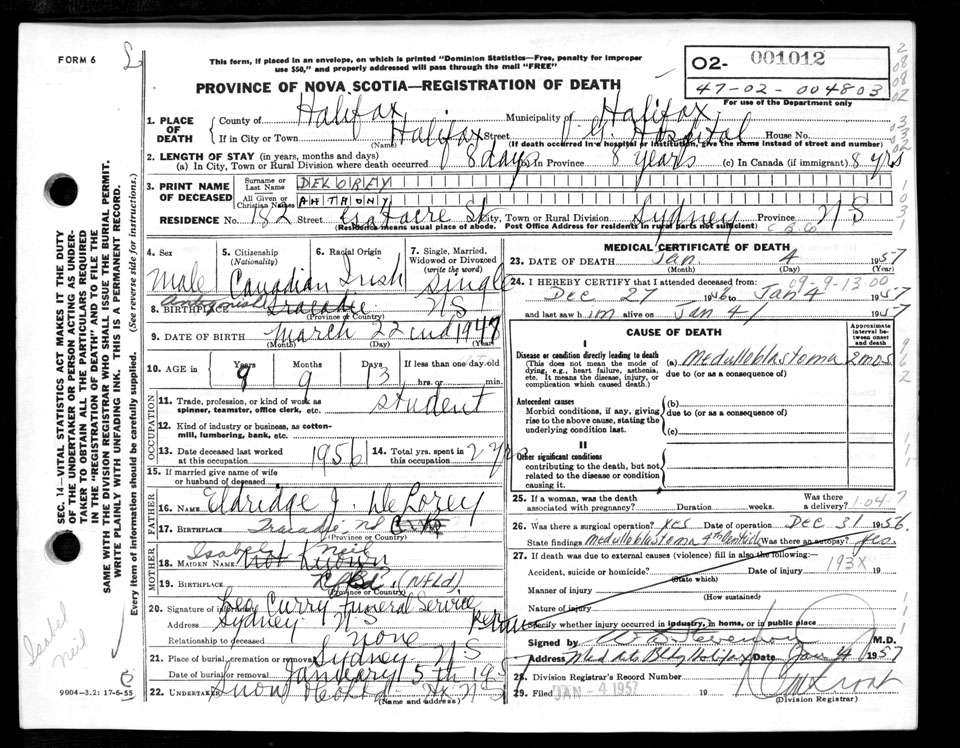 FORM 6
This form, if placed in an envelope, on which is printed "Dominion Statistics—Free, penalty for improper
use $50," and properly addressed will pass through the mail "FREE"
O2- 001012
47-02-004803
For use of the Department only
PROVINCE OF NOVA SCOTIA—REGISTRATION OF DEATH
1. PLACE OF DEATH County of Halifax Municipality of Halifax
If in City or Town Halifax Street V. G. Hospital House No.
(Name) (If death occurred in a hospital or institution, give the name instead of street and number)
2. LENGTH OF STAY (in years, months and days)
(a) In City, Town or Rural Division where death occurred 8 days (b) in Province 8 years (c) In Canada (if immigrant) 8 yrs
3. PRINT NAME OF DECEASED Surname or Last Name DELOREY
All Given or Christian Names ANTHONY
RESIDENCE No. 182 Street City, Town or Rural Division Sydney Province N S
(Residence means usual place of abode. Post Office Address for residents in rural parts not sufficient) C.B.Co
4. Sex Male
5. Citizenship (Nationality) Canadian
6. Racial Origin Irish
7. Single, Married, Widowed or Divorced (write the word) Single
8. BIRTHPLACE Antigonish Tracadie N S
9. DATE OF BIRTH March 22 cnd 1947
(Month) (Day) (Year)
10. AGE in Years 9 Months 9 Days 13 If less than one day old hrs. or min.
OCCUPATION
11. Trade, profession, or kind of work as spinner, teamster, office clerk, etc. student
12. Kind of industry or business, as cotton-mill, lumbering, bank, etc.
13. Date deceased last worked at this occupation 1956 14. Total yrs. spent in this occupation 2 yrs
15. If married give name of wife or husband of deceased
FATHER
16. NAME Eldridge J. DeLorey
17. BIRTHPLACE Tracadie, N S
(Province or Country)
MOTHER
18. MAIDEN NAME Isabel Neil Not Known
19. BIRTHPLACE (NFLd)
(Province or Country)
20. Signature of informant Leo Curry Funeral Service
Address Sydney N S
Relationship to deceased none
21. Place of burial, cremation or removal Sydney N S
Date of burial or removal January 5 th 195
22. UNDERTAKER Snow Hx N S
(Name and address)
MEDICAL CERTIFICATE OF DEATH
23. DATE OF DEATH Jan. 4 1957
(Month) (Day) (Year)
24. I HEREBY CERTIFY that I attended deceased from: 09-9-13-00
Dec 27 1956 to Jan 4 1957
and last saw him alive on Jan 4 1957
CAUSE OF DEATH
Approximate interval between onset and death
I
Disease or condition directly leading to death (a) Medulloblastoma 2 mos
(This does not mean the mode of dying, e.g., heart failure, asthenia, etc. It means the disease, injury, or complication which caused death.) due to (or as a consequence of)
Antecedent causes (b)
Morbid conditions, if any, giving rise to the above cause, stating the underlying condition last. due to (or as a consequence of)
(c)
II
Other significant conditions
contributing to the death, but not related to the disease or condition causing it.
25. If a woman, was the death associated with pregnancy? Duration weeks. Was there a delivery? 1-04-7
26. Was there a surgical operation? Yes Date of operation Dec 31 1956.
State findings Medulloblastoma 4th Ventricle Was there an autopsy? Yes.
27. If death was due to external causes (violence) fill in also the following:
Accident, suicide or homicide? Date of injury 193X 19
(State which)
Manner of injury
(How sustained)
Nature of injury
Specify whether injury occurred in industry, in home, or in public place
Signed by M.D.
Address Halifax Date Jan 4 1957
28. Division Registrar's Record Number
29. Filed JAN - 4 1957 19
(Division Registrar)
SEC. 14—VITAL STATISTICS ACT MAKES IT THE DUTY
OF THE UNDERTAKER OR PERSON ACTING AS UNDER-
TAKER TO OBTAIN ALL THE PARTICULARS REQUIRED
IN THE "REGISTRATION OF DEATH" AND TO FILE THE
SAME WITH THE DIVISION REGISTRAR WHO SHALL ISSUE THE BURIAL PERMIT.
WRITE PLAINLY WITH UNFADING INK. THIS IS A PERMANENT RECORD.
Every item of information should be carefully supplied. (See reverse side for instructions.)
Isabel
Neil
9004-3.2: 17-6-55